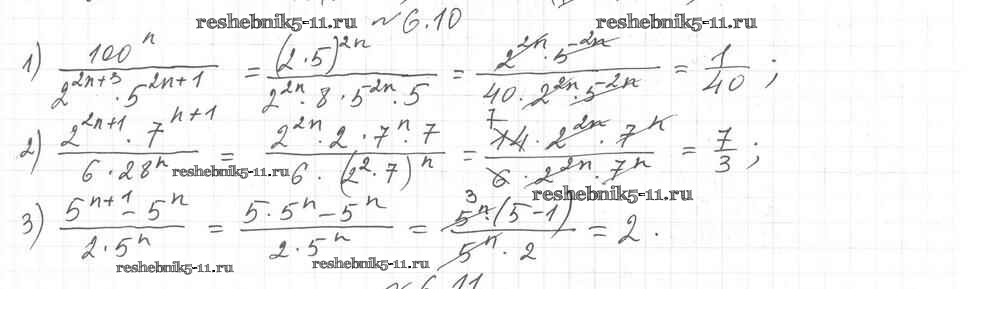 reshebnik5-11.ru №6.10 reshebnik5-11.ru
1) 100^n / (2^(2n+3) · 5^(2n+1)) = (2·5)^(2n) / (2^(2n) · 8 · 5^(2n) · 5) = (2^(2n) · 5^(2n)) / (40 · 2^(2n) · 5^(2n)) = 1/40 ;
2) (2^(2n+1) · 7^(n+1)) / (6 · 28^n) = (2^(2n) · 2 · 7^n · 7) / (6 · (2^2 · 7)^n) = (14 · 2^(2n) · 7^n) / (6 · 2^(2n) · 7^n) = 7/3 ;
reshebnik5-11.ru
reshebnik5-11.ru
3) (5^(n+1) - 5^n) / (2 · 5^n) = (5 · 5^n - 5^n) / (2 · 5^n) = (5^n · (5-1)) / (5^n · 2) = 2 .
reshebnik5-11.ru reshebnik5-11.ru
№6.11